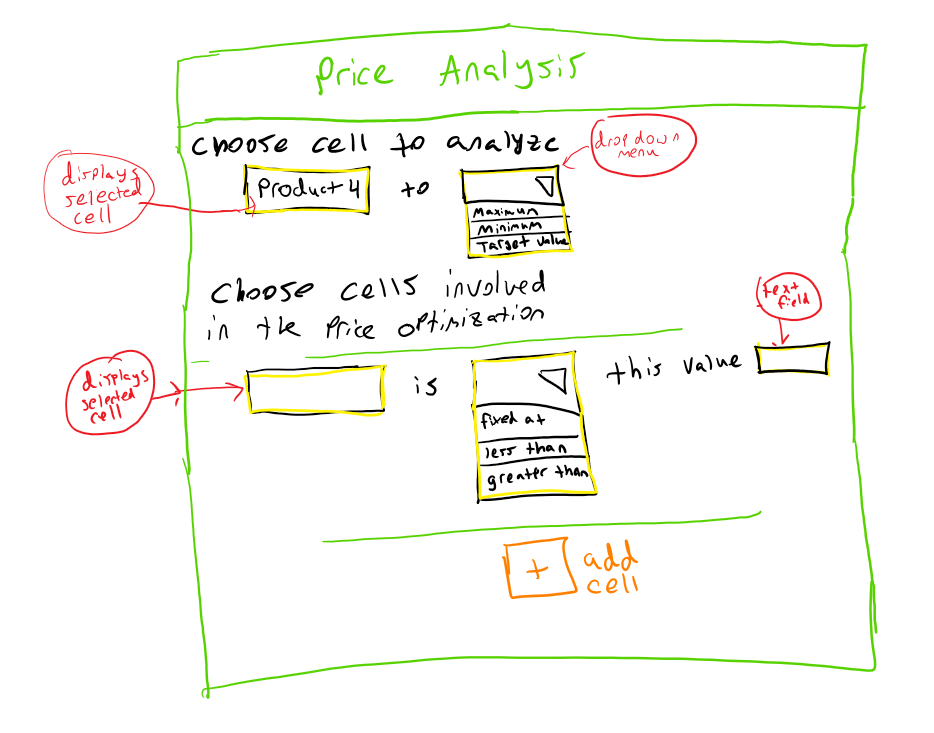 Price Analysis
choose cell to analyze
drop down
menu
displays
selected
cell
Product 4
to
Maximum
Minimum
Target Value
Choose cells involved
in the Price optimization
text
field
displays
selected
cell
is
this value
fixed at
less than
greater than
+
add
cell